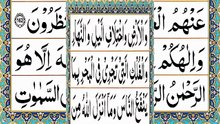 عَنْهُمُ
وَاِلٰهُكُمْ
الرَّحْمٰنُ
وَالْاَرْضِ وَاخْتِلَافِ الَّيْلِ وَالنَّهَارِ
وَالْفُلْكِ الَّتِيْ تَجْرِيْ فِي الْبَحْرِ بِمَا
يَنْفَعُ النَّاسَ وَمَآ اَنْزَلَ اللّٰهُ مِنَ
يُنْظَرُوْنَ
اِلَّا هُوَ
السَّمٰوٰتِ